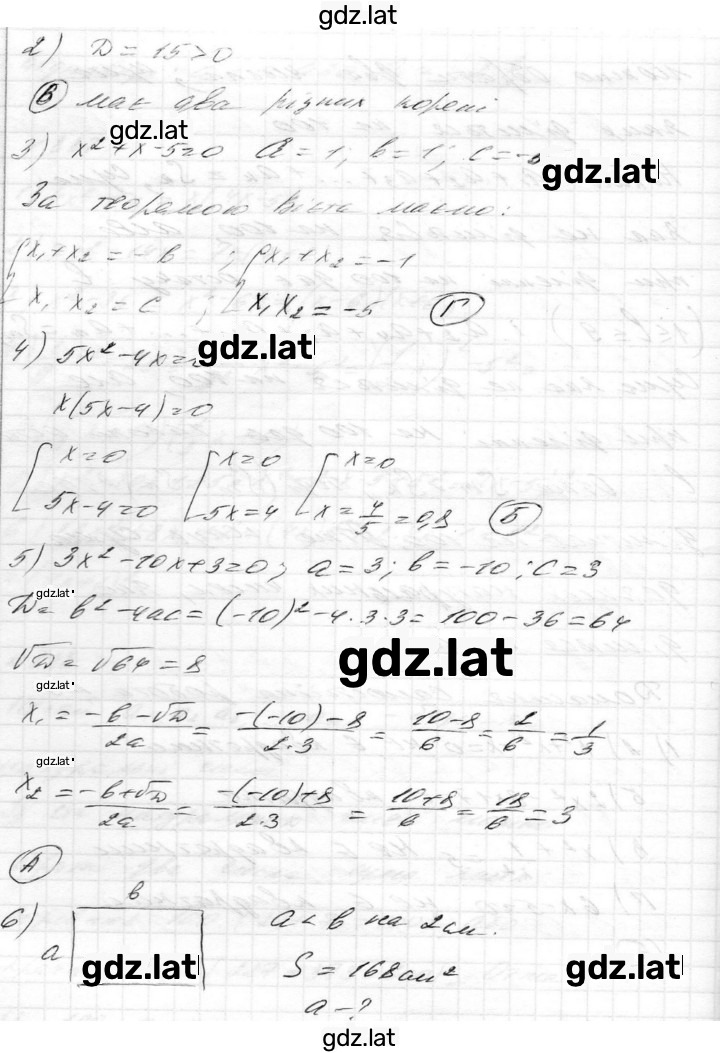 gdz.lat
2) D = 15 > 0
В має два різних корені
gdz.lat
3) x² + x - 5 = 0 a = 1; b = 1; c = -5
gdz.lat
За теоремою Вієта маємо:
{ x₁ + x₂ = -b ; { x₁ + x₂ = -1
x₁ x₂ = c ; x₁ x₂ = -5 Г
4) 5x² - 4x =
gdz.lat
x(5x - 4) = 0
[ x = 0 [ x = 0 [ x = 0
5x - 4 = 0 5x = 4 x = 4/5 = 0,8 Б
5) 3x² - 10x + 3 = 0; a = 3; b = -10; c = 3
gdz.lat
D = b² - 4ac = (-10)² - 4·3·3 = 100 - 36 = 64
√D = √64 = 8
gdz.lat
gdz.lat
x₁ = (-b - √D)/2a = (-(-10) - 8)/2·3 = (10 - 8)/6 = 2/6 = 1/3
gdz.lat
x₂ = (-b + √D)/2a = (-(-10) + 8)/2·3 = (10 + 8)/6 = 18/6 = 3
А
6) b a < b на 2 см.
a
gdz.lat
S = 168 см²
gdz.lat
a - ?
gdz.lat